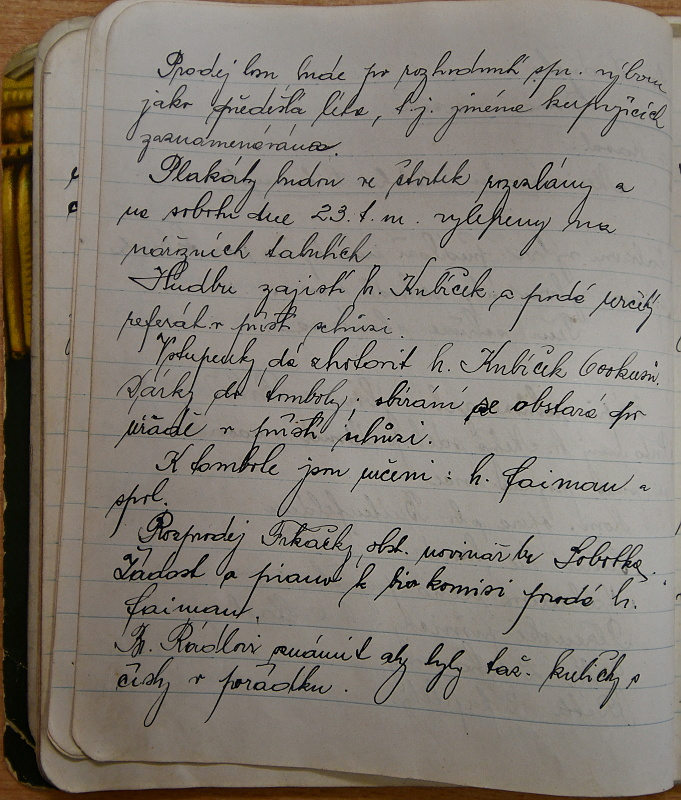 Prodej bude po rozhodnutí spr. výboru
jako předešlá léta, t. j. jména kupujících
zaznamenávána.
Plakáty budou ve čtvrtek rozeslány a
na sobotu dne 23. t. m. vylepeny na
nárožních tabulích
Hudbu zajistí h. Kubíček a podá určitý
referát v příští schůzi.
Vstupenky dá zhotovit h. Kubíček 600 kusů.
Dárky do tomboly; sbírání se obstará po
úřadě v příští schůzi.
K tombole jsou určeni: h. Faiman a
spol.
Rozprodej Frkačky, obst. novinář br Sobotka.
Žádost o piano k bio komisi podá h.
Faiman.
Br. Rádlovi oznámit aby byly taž. kuličky s
čísly v pořádku.